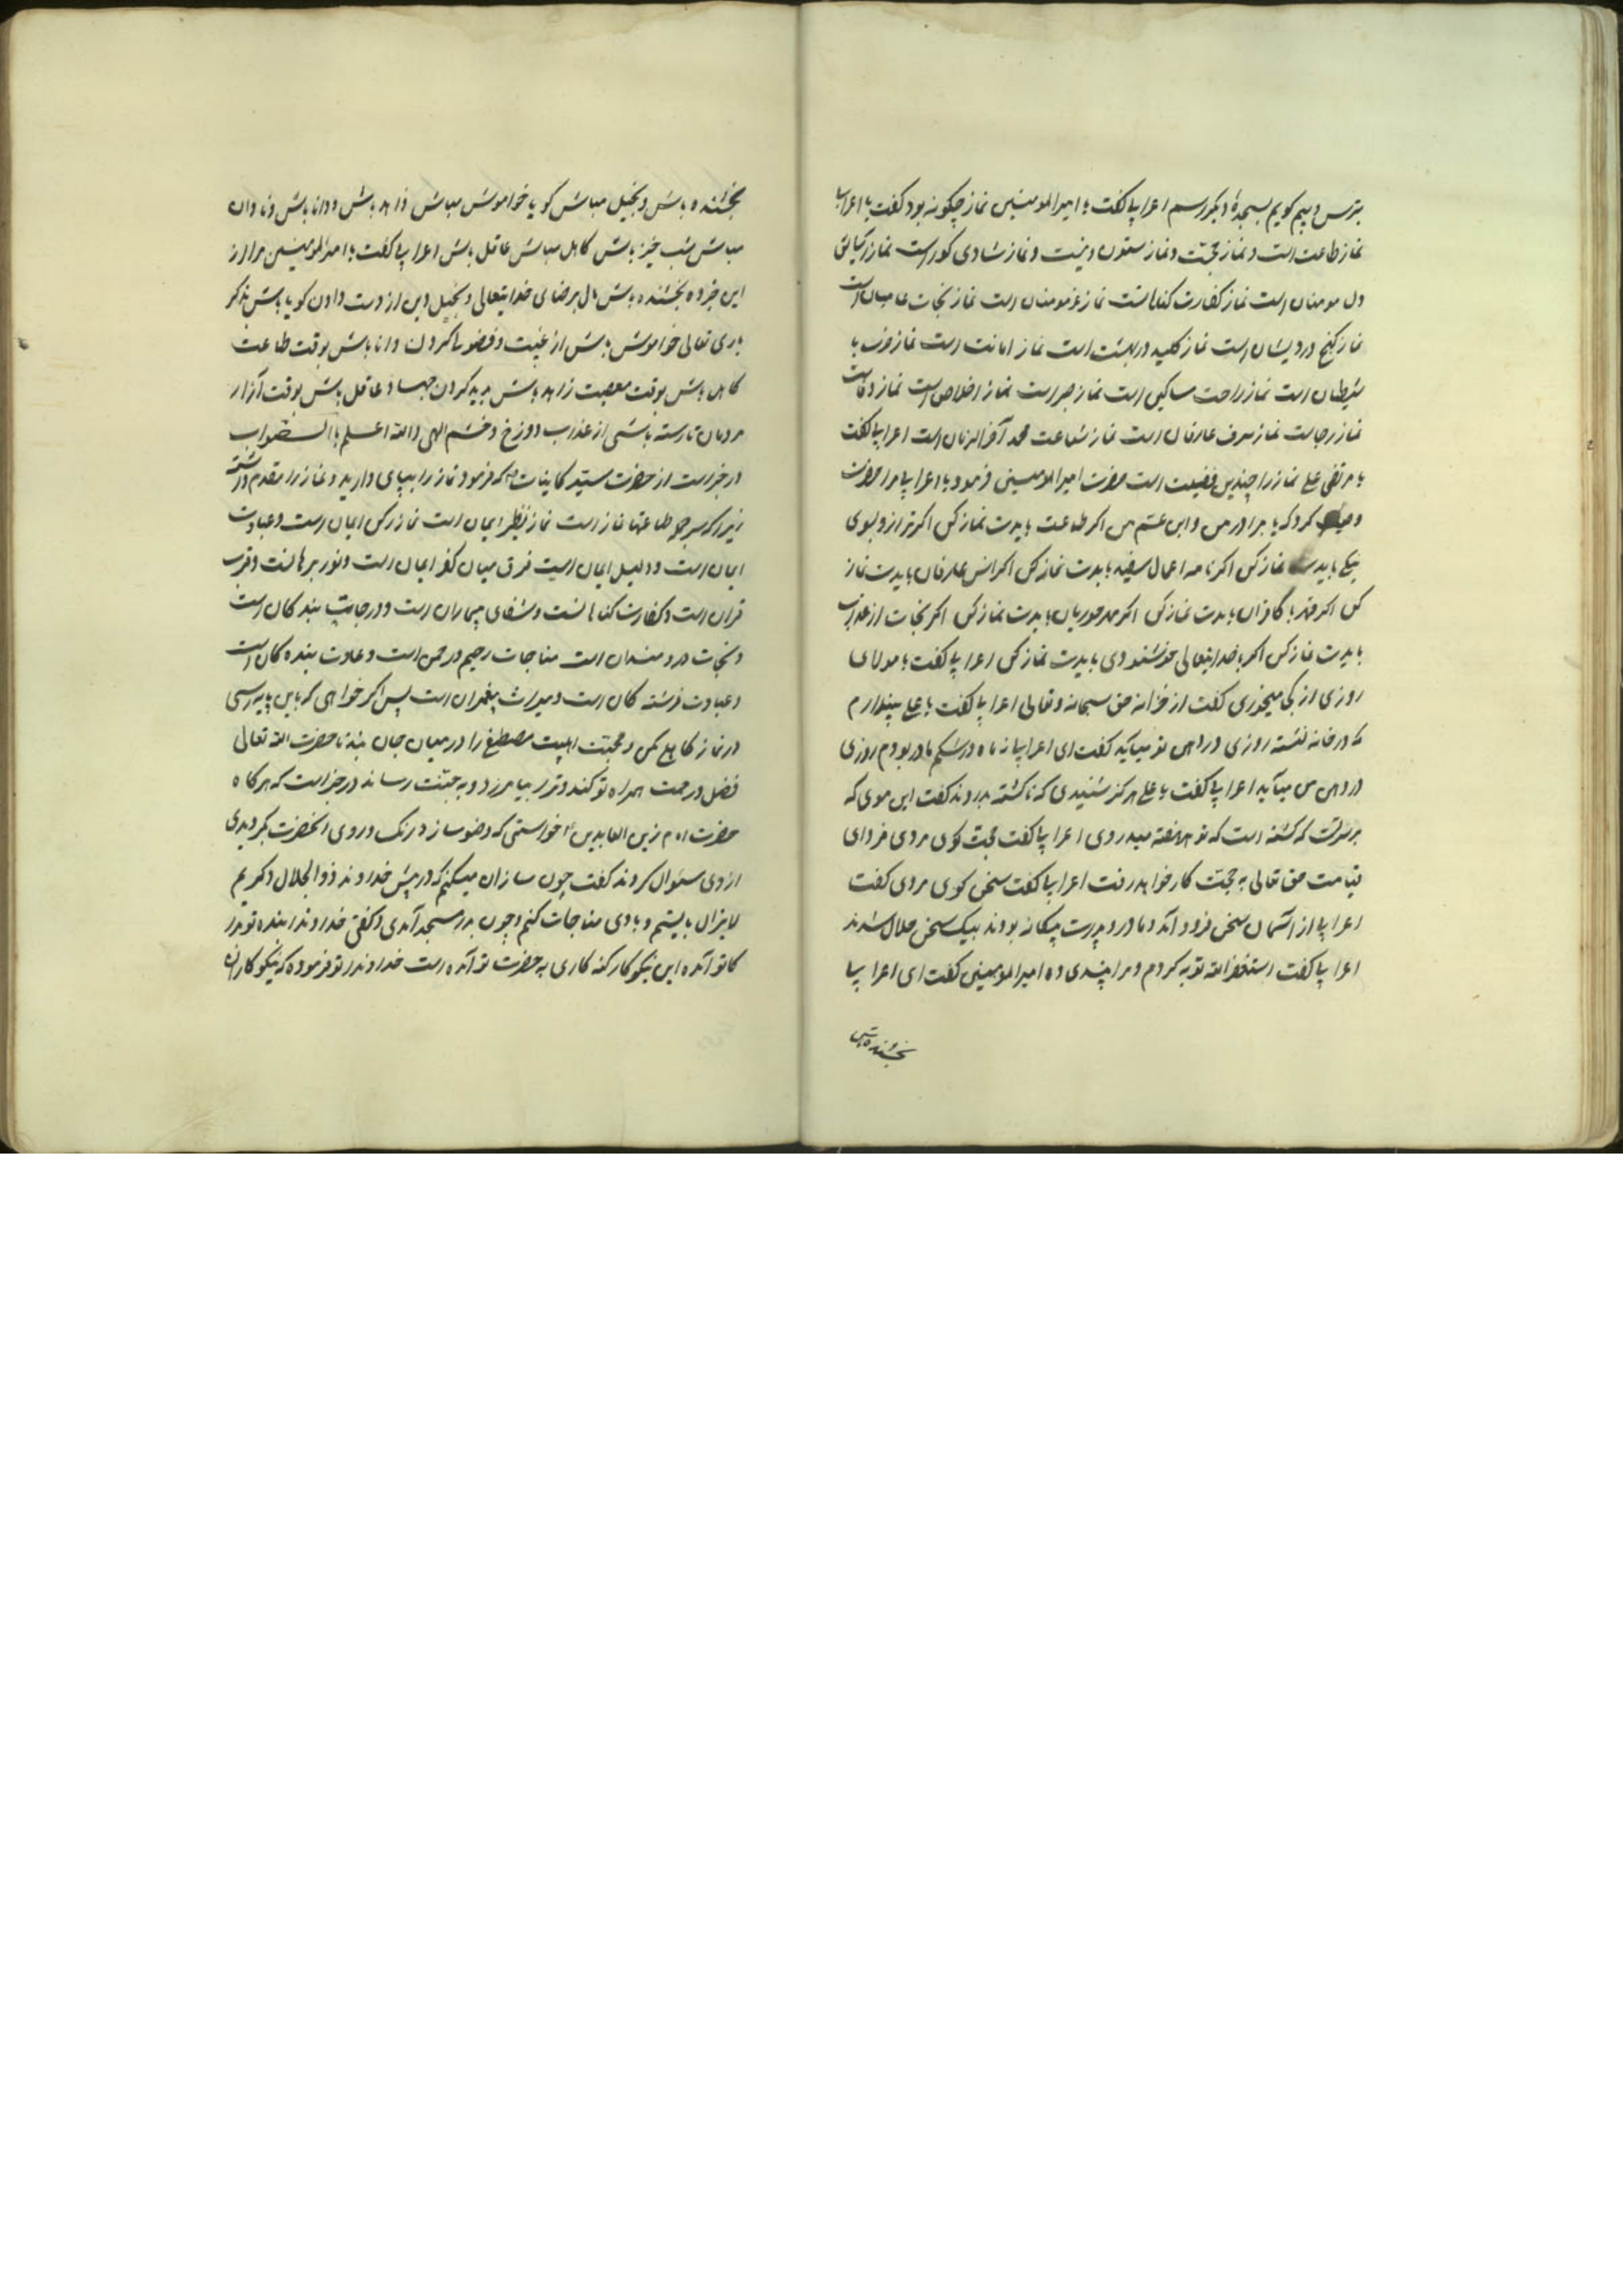 بترس و بیم کویم بسجدهٔ دیکر رسم اعرابیا کفت یا امیرالمومنین نماز چکونه بود کفت یا اعرابیا
نماز طاعت است و نماز محبّت و نماز ستون دینست و نماز شادی کور است نماز
دل مومنان است نماز کفارت کناهانست نماز عز مومنان است نماز نجات عاصیان است
نماز کنج درویشان است نماز کلید در بهشت است نماز امانت است نماز حرب با
شیطان است نماز راحت مساکین است نماز صبر است نماز اخلاص است نماز
نماز رجا است نماز شرف عارفان است نماز شفاعت محمد آخرالزمان است اعرابیا کفت
یا مرتضی علی نماز را چندین فضیلت است حضرت امیرالمومنین فرمود یا اعرابیا مرا حضرت
وصیت کرد که یا برادر من و ابن عم من اکر طاعت بایدت نماز کن اکر ترازو
بایدت نماز کن اکر نامه اعمال سفید بایدت نماز کن اکر انس عارفان بایدت نماز
کن اکر قهر با کافران بایدت نماز کن اکر مهر حوریان بایدت نماز کن اکر نجات از عذاب
بایدت نماز کن اکر با خدایتعالی خوشنودی بایدت نماز کن اعرابیا کفت یا مولای
روزی از کجا میخوری کفت از خزانه حق سبحانه و تعالی اعرابیا کفت یا علی پندارم
که در خانه نشسته روزی در دهن تو میآید کفت ای اعرابیا نه ماه در شکم مادر بودم روزی
در دهن من میآید اعرابیا کفت یا علی هرکز شنیدی که ناکشته بدروند کفت این موی که
بر سرت که کشته است که تو هر هفته میدروی اعرابیا کفت حجت کوی مردی فردای
قیامت حق تعالی به حجت کار خواهد رفت اعرابیا کفت سخن کوی مردی کفت
اعرابیا از آسمان سخن فرود آمد و مادر و پدرت بیکانه بودند بیک سخن حلال شدند
اعرابیا کفت استغفرالله توبه کردم و مرا پندی ده امیرالمؤمنین کفت ای اعرابیا
بخشنده باش
بخشنده باش و بخیل مباش کویا خاموش مباش زاهد باش و دانا باش و نادان
مباش شب خیز باش کاهل مباش عاقل باش اعرابیا کفت یا امیرالمؤمنین مرا از
این خبر ده بخشنده باش مال برضای خدایتعالی و بخیل دین از دست دادن کویا باش بذکر
باری تعالی خواموش باش از غیبت و فضولی کردن دانا باش بوقت طاعت
کاهل باش بوقت معصیت زاهد باش به کردن جهاد عاقل باش بوقت آزار
مردمان تا رسته باشی از عذاب دوزخ و خشم الهی والله اعلم باالصواب
در خبر است از حضرت سید کاینات که فرمود نماز را بپای دارید و نماز را مقدم داشته
زیرا که سر جمله طاعتها نماز است نماز نظر ایمان است نماز رکن ایمان است و عبادت
ایمان است و دلیل ایمان است فرق میان کفر ایمان است و نور برهانست و قرب
قران است و کفارت کناهانست و شفای بیماران است و درجات بندکان است
و نجات دردمندان است مناجات رحیم و رحمن است و عادت بندهکان است
و عبادت فرشتهکان است و میراث پیغمبران است پس اکر خواهی که باین پایه رسی
در نماز کاهلی مکن و محبّت اهلبیت مصطفی را در میان جان بنه تا حضرت الله تعالی
فضل و رحمت همراه تو کند و ترا بیامرزد و به جنّت رساند در خبر است که هرکاه
حضرت امام زین العابدین خواستی که وضو سازد رنک و روی آنحضرت بکردیدی
از وی سئوال کردند کفت چون سازان میکنم که در پیش خداوند ذوالجلال و کریم
لایزال بایستم و با وی مناجات کنم و چون بدر مسجد آمدی و کفتی خداوندا بنده تو بدر
کا تو آمده این نیکوکار کنه کاری به حضرت تو آمده است خداوندا تو فرموده که نیکوکاران